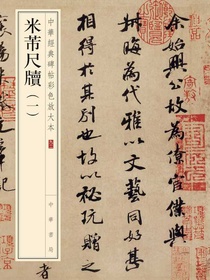 中華經典碑帖彩色放大本
米芾尺牘（一）
中華書局
余始興公故為僚宦僕與
叔晦為代雅以文藝同好甚
相得於其別也故以秘玩贈之
者